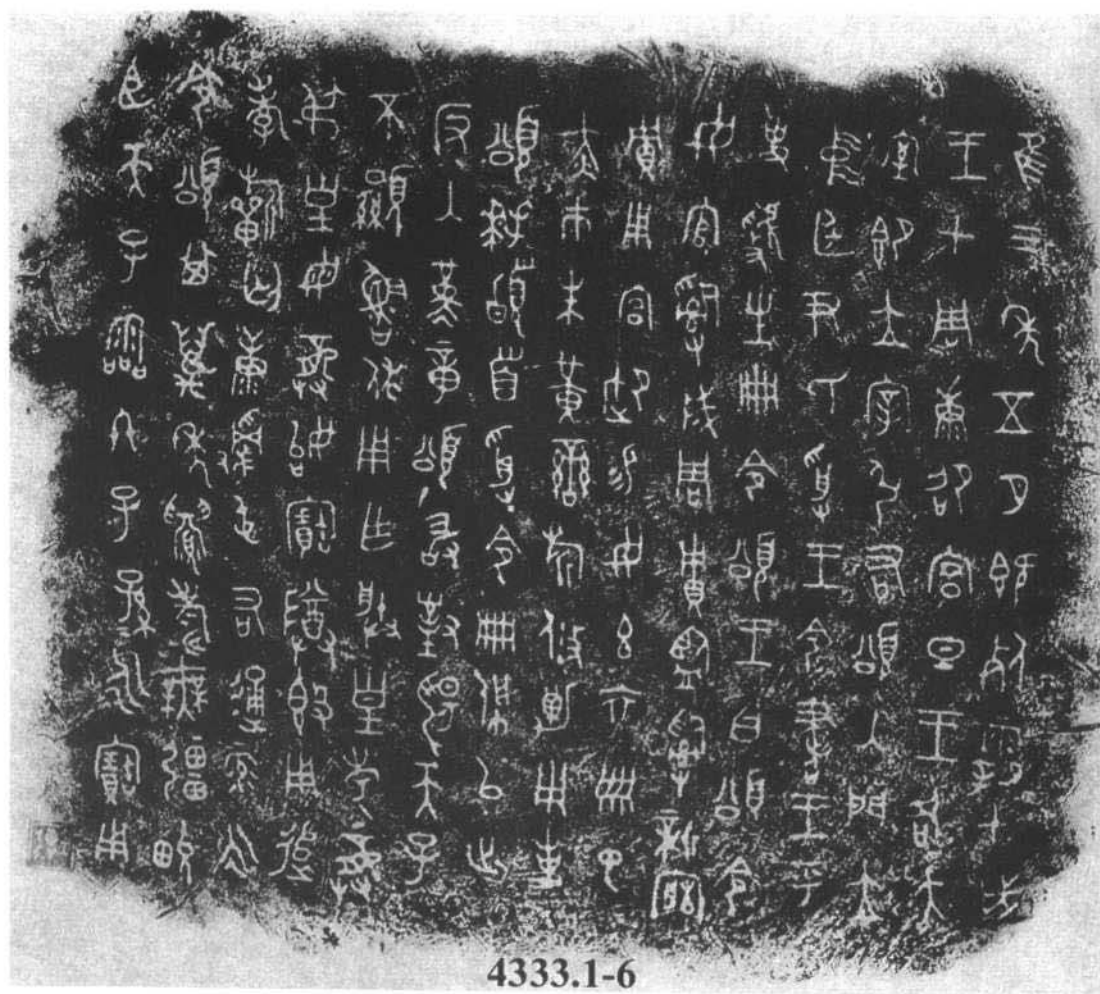 隹三年五月既死霸甲戌
王才周康卲宮旦王各大
室即立宰弘右頌入門立
中廷尹氏受王令書王乎
史虢生冊令頌王曰頌令
女官𤔲成周貯監𤔲新寤
貯用宮御易女玄衣黹屯
赤巿朱黃䜌旂攸勒用事
頌拜𩒨首受令冊佩以出
反入堇章頌敢對揚天子
不顯魯休用乍朕皇考龏
弔皇母龏始寶尊𣪘用追
孝祈匄康𩁹屯右通彔永
令頌其萬年眉壽無疆畯
臣天子霝冬子孫永寶用
4333.1-6